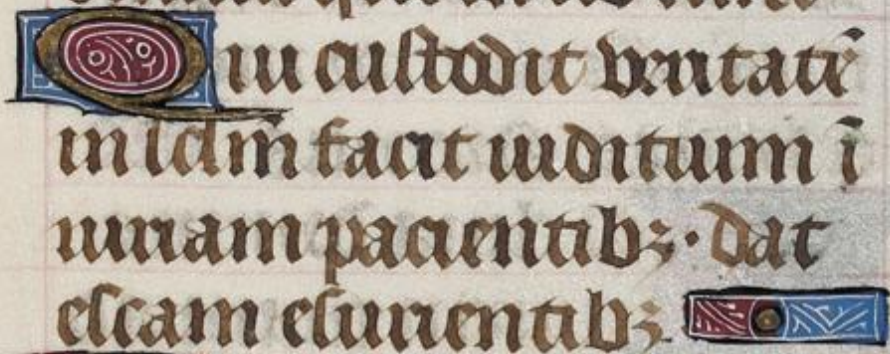 Qui custodit veritatē
in sclm̄ facit iudicium ī
iuriam pacientibꝫ· dat
escam esurientibꝫ